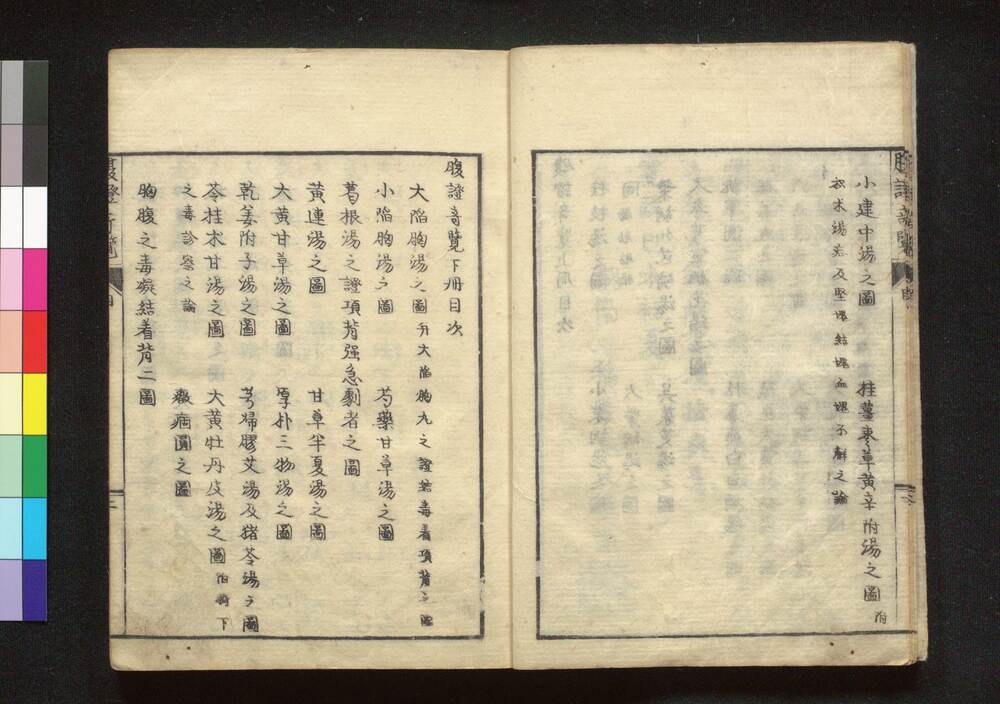 小建中湯之圖　桂薑棗草黄辛附湯之圖 附
朮湯 及堅塊結塊血塊 之論
腹證奇覽下冊目次
大陷胸湯之圖 大陷胸丸之證結毒着項背之圖
小陷胸湯之圖　芍藥甘草湯之圖
葛根湯之證項背强急劇者之圖
黄連湯之圖　甘草半夏湯之圖
大黄甘草湯之圖　厚朴三物湯之圖
乾姜附子湯之圖　芎歸膠艾湯及猪苓湯之圖
苓桂朮甘湯之圖　大黄牡丹皮湯之圖
之毒診察之論　之圖
胸腹之毒凝結着背二圖
腹證奇覽